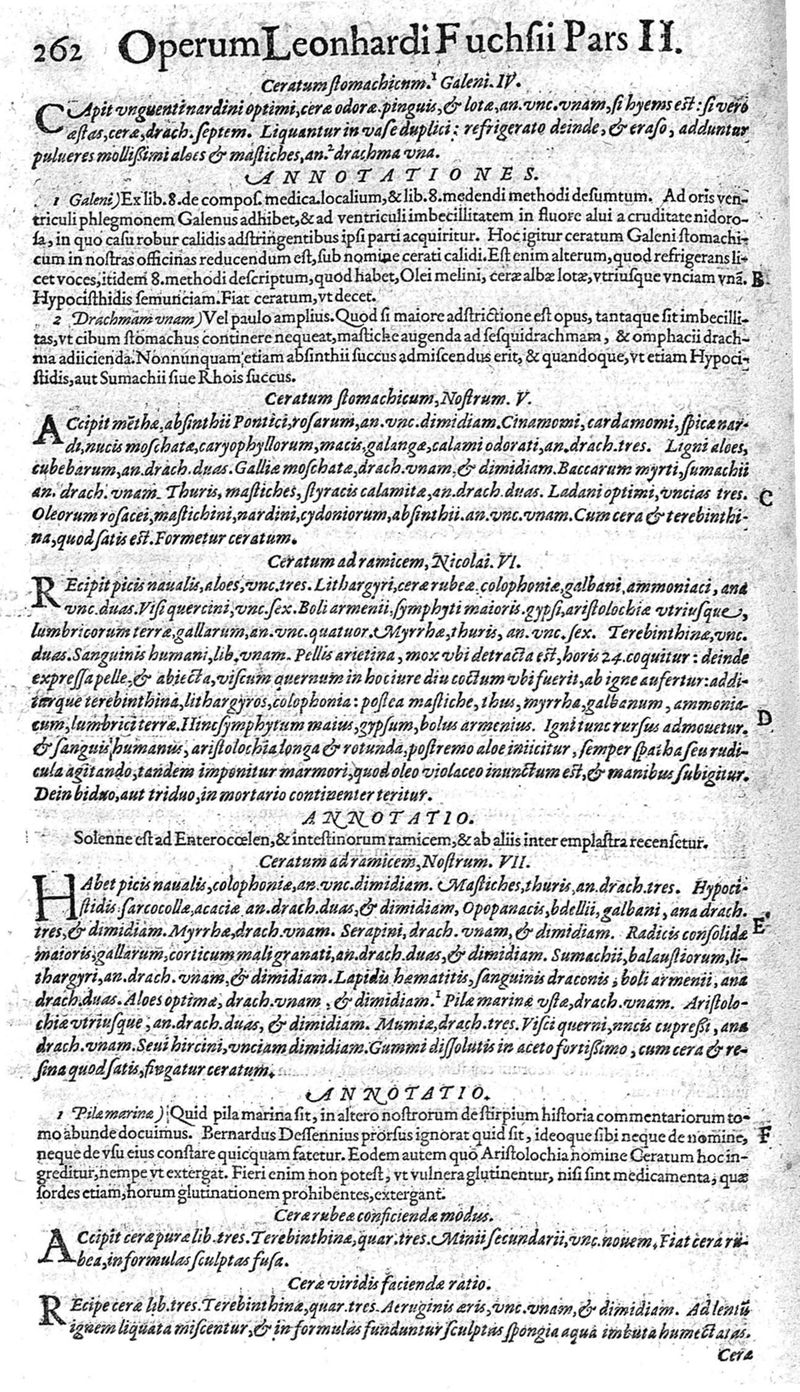 262 Operum Leonhardi Fuchſii Pars II.
Ceratum ſtomachicum.¹ Galeni. IV.
CApit vnguenti nardini optimi, ceræ odoræ. pinguis, & lotæ, an. vnc. vnam, ſi hyems eſt: ſi verò
æſtas, ceræ, drach. ſeptem. Liquantur in vaſe duplici: refrigerato deinde, & eraſo, adduntur
pulueres mollißimi aloes & maſtiches, an.² drachma vna.
ANNOTATIONES.
1 Galeni) Ex lib. 8. de compoſ. medica. localium, & lib. 8. medendi methodi deſumtum. Ad oris ven-
triculi phlegmonem Galenus adhibet, & ad ventriculi imbecillitatem in fluore alui a cruditate nidoro-
ſa, in quo caſu robur calidis adſtringentibus ipſi parti acquiritur. Hoc igitur ceratum Galeni ſtomachi-
cum in noſtras officinas reducendum eſt, ſub nomine cerati calidi. Eſt enim alterum, quod refrigerans li-
cet voces, itidem 8. methodi deſcriptum, quod habet, Olei melini, ceræ albæ lotæ, vtriuſque vnciam vnā. B
Hypociſthidis ſemunciam. Fiat ceratum, vt decet.
2 Drachmam vnam) Vel paulo amplius. Quod ſi maiore adſtrictione eſt opus, tantaque ſit imbecilli-
tas, vt cibum ſtomachus continere nequeat, maſtiche augenda ad ſeſquidrachmam, & omphacii drach-
ma adiicienda. Nonnunquam etiam abſinthii ſuccus admiſcendus erit, & quandoque, vt etiam Hypoci-
ſtidis, aut Sumachii ſiue Rhois ſuccus.
Ceratum ſtomachicum, Noſtrum. V.
ACcipit mēthæ, abſinthii Pontici, roſarum, an. vnc. dimidiam. Cinamomi, cardamomi, ſpicæ nar-
di, nucis moſchatæ, caryophyllorum, macis, galangæ, calami odorati, an. drach. tres. Ligni aloes,
cubebarum, an. drach. duas. Galliæ moſchatæ, drach. vnam, & dimidiam. Baccarum myrti, ſumachii
an. drach. vnam. Thuris, maſtiches, ſtyracis calamitæ, an. drach. duas. Ladani optimi, vncias tres. C
Oleorum roſacei, maſtichini, nardini, cydoniorum, abſinthii. an. vnc. vnam. Cum cera & terebinthi-
na, quod ſatis eſt. Formetur ceratum.
Ceratum ad ramicem, Nicolai. VI.
REcipit picis naualis, aloes, vnc. tres. Lithargyri, ceræ rubeæ. colophoniæ, galbani, ammoniaci, ana
vnc. duas. Viſi quercini, vnc. ſex. Boli armenii, ſymphyti maioris. gypſi, ariſtolochiæ vtriuſque,
lumbricorum terræ, gallarum, an. vnc. quatuor. Myrrhæ, thuris, an. vnc. ſex. Terebinthinæ, vnc.
duas. Sanguinis humani, lib. vnam. Pellis arietina, mox vbi detracta eſt, horis 24. coquitur: deinde
expreſſa pelle, & abiecta, viſcum quernum in hoc iure diu coctum vbi fuerit, ab igne aufertur: addi-
turque terebinthina, lithargyros, colophonia: poſtea maſtiche, thus, myrrha, galbanum, ammonia-
cum, lumbrici terræ. Hinc ſymphytum maius, gypſum, bolus armenius. Igni tunc rurſus admouetur. D
& ſanguis humanus, ariſtolochia longa & rotunda, poſtremo aloe iniicitur, ſemper ſpatha ſeu rudi-
cula agitando, tandem imponitur marmori, quod oleo violaceo inunctum eſt, & manibus ſubigitur.
Dein biduo, aut triduo, in mortario continenter teritur.
ANNOTATIO.
Solenne eſt ad Enterocœlen, & inteſtinorum ramicem, & ab aliis inter emplaſtra recenſetur.
Ceratum ad ramicem, Noſtrum. VII.
HAbet picis naualis, colophoniæ, an. vnc. dimidiam. Maſtiches, thuris, an. drach. tres. Hypoci-
ſtidis. ſarcocollæ, acaciæ an. drach. duas, & dimidiam, Opopanacis, bdellii, galbani, ana drach.
tres, & dimidiam. Myrrhæ, drach. vnam. Serapini, drach. vnam, & dimidiam. Radicis conſolidæ E
maioris, gallarum, corticum mali granati, an. drach. duas, & dimidiam. Sumachii, balauſtiorum, li-
thargyri, an. drach. vnam, & dimidiam. Lapidis hæmatitis, ſanguinis draconis, boli armenii, ana
drach. duas. Aloes optimæ, drach. vnam, & dimidiam.¹ Pilæ marinæ vſtæ, drach. vnam. Ariſtolo-
chiæ vtriuſque, an. drach. duas, & dimidiam. Mumiæ, drach. tres. Viſci querni, nucis cupreſſi, ana
drach. vnam. Seui hircini, vnciam dimidiam. Gummi diſſolutis in aceto fortiſſimo, cum cera & re-
ſina quod ſatis, fingatur ceratum.
ANNOTATIO.
1 Pilæ marinæ) Quid pila marina ſit, in altero noſtrorum de ſtirpium hiſtoria commentariorum to-
mo abunde docuimus. Bernardus Deſſennius prorſus ignorat quid ſit, ideoque ſibi neque de nomine, F
neque de vſu eius conſtare quicquam fatetur. Eodem autem quo Ariſtolochia nomine Ceratum hoc in-
greditur, nempe vt extergat. Fieri enim non poteſt, vt vulnera glutinentur, niſi ſint medicamenta, quæ
ſordes etiam, horum glutinationem prohibentes, extergant.
Ceræ rubeæ conficiendæ modus.
ACcipit ceræ puræ lib. tres. Terebinthinæ, quar. tres. Minii ſecundarii, vnc. nouem. Fiat cera ru-
bea, in formulas ſculptas fuſa.
Ceræ viridis faciendæ ratio.
REcipe ceræ lib. tres. Terebinthinæ, quar. tres. Aeruginis æris, vnc. vnam, & dimidiam. Ad lentū
ignem liquata miſcentur, & in formulas funduntur ſculptas ſpongia aqua imbuta humectatas.
Ceræ